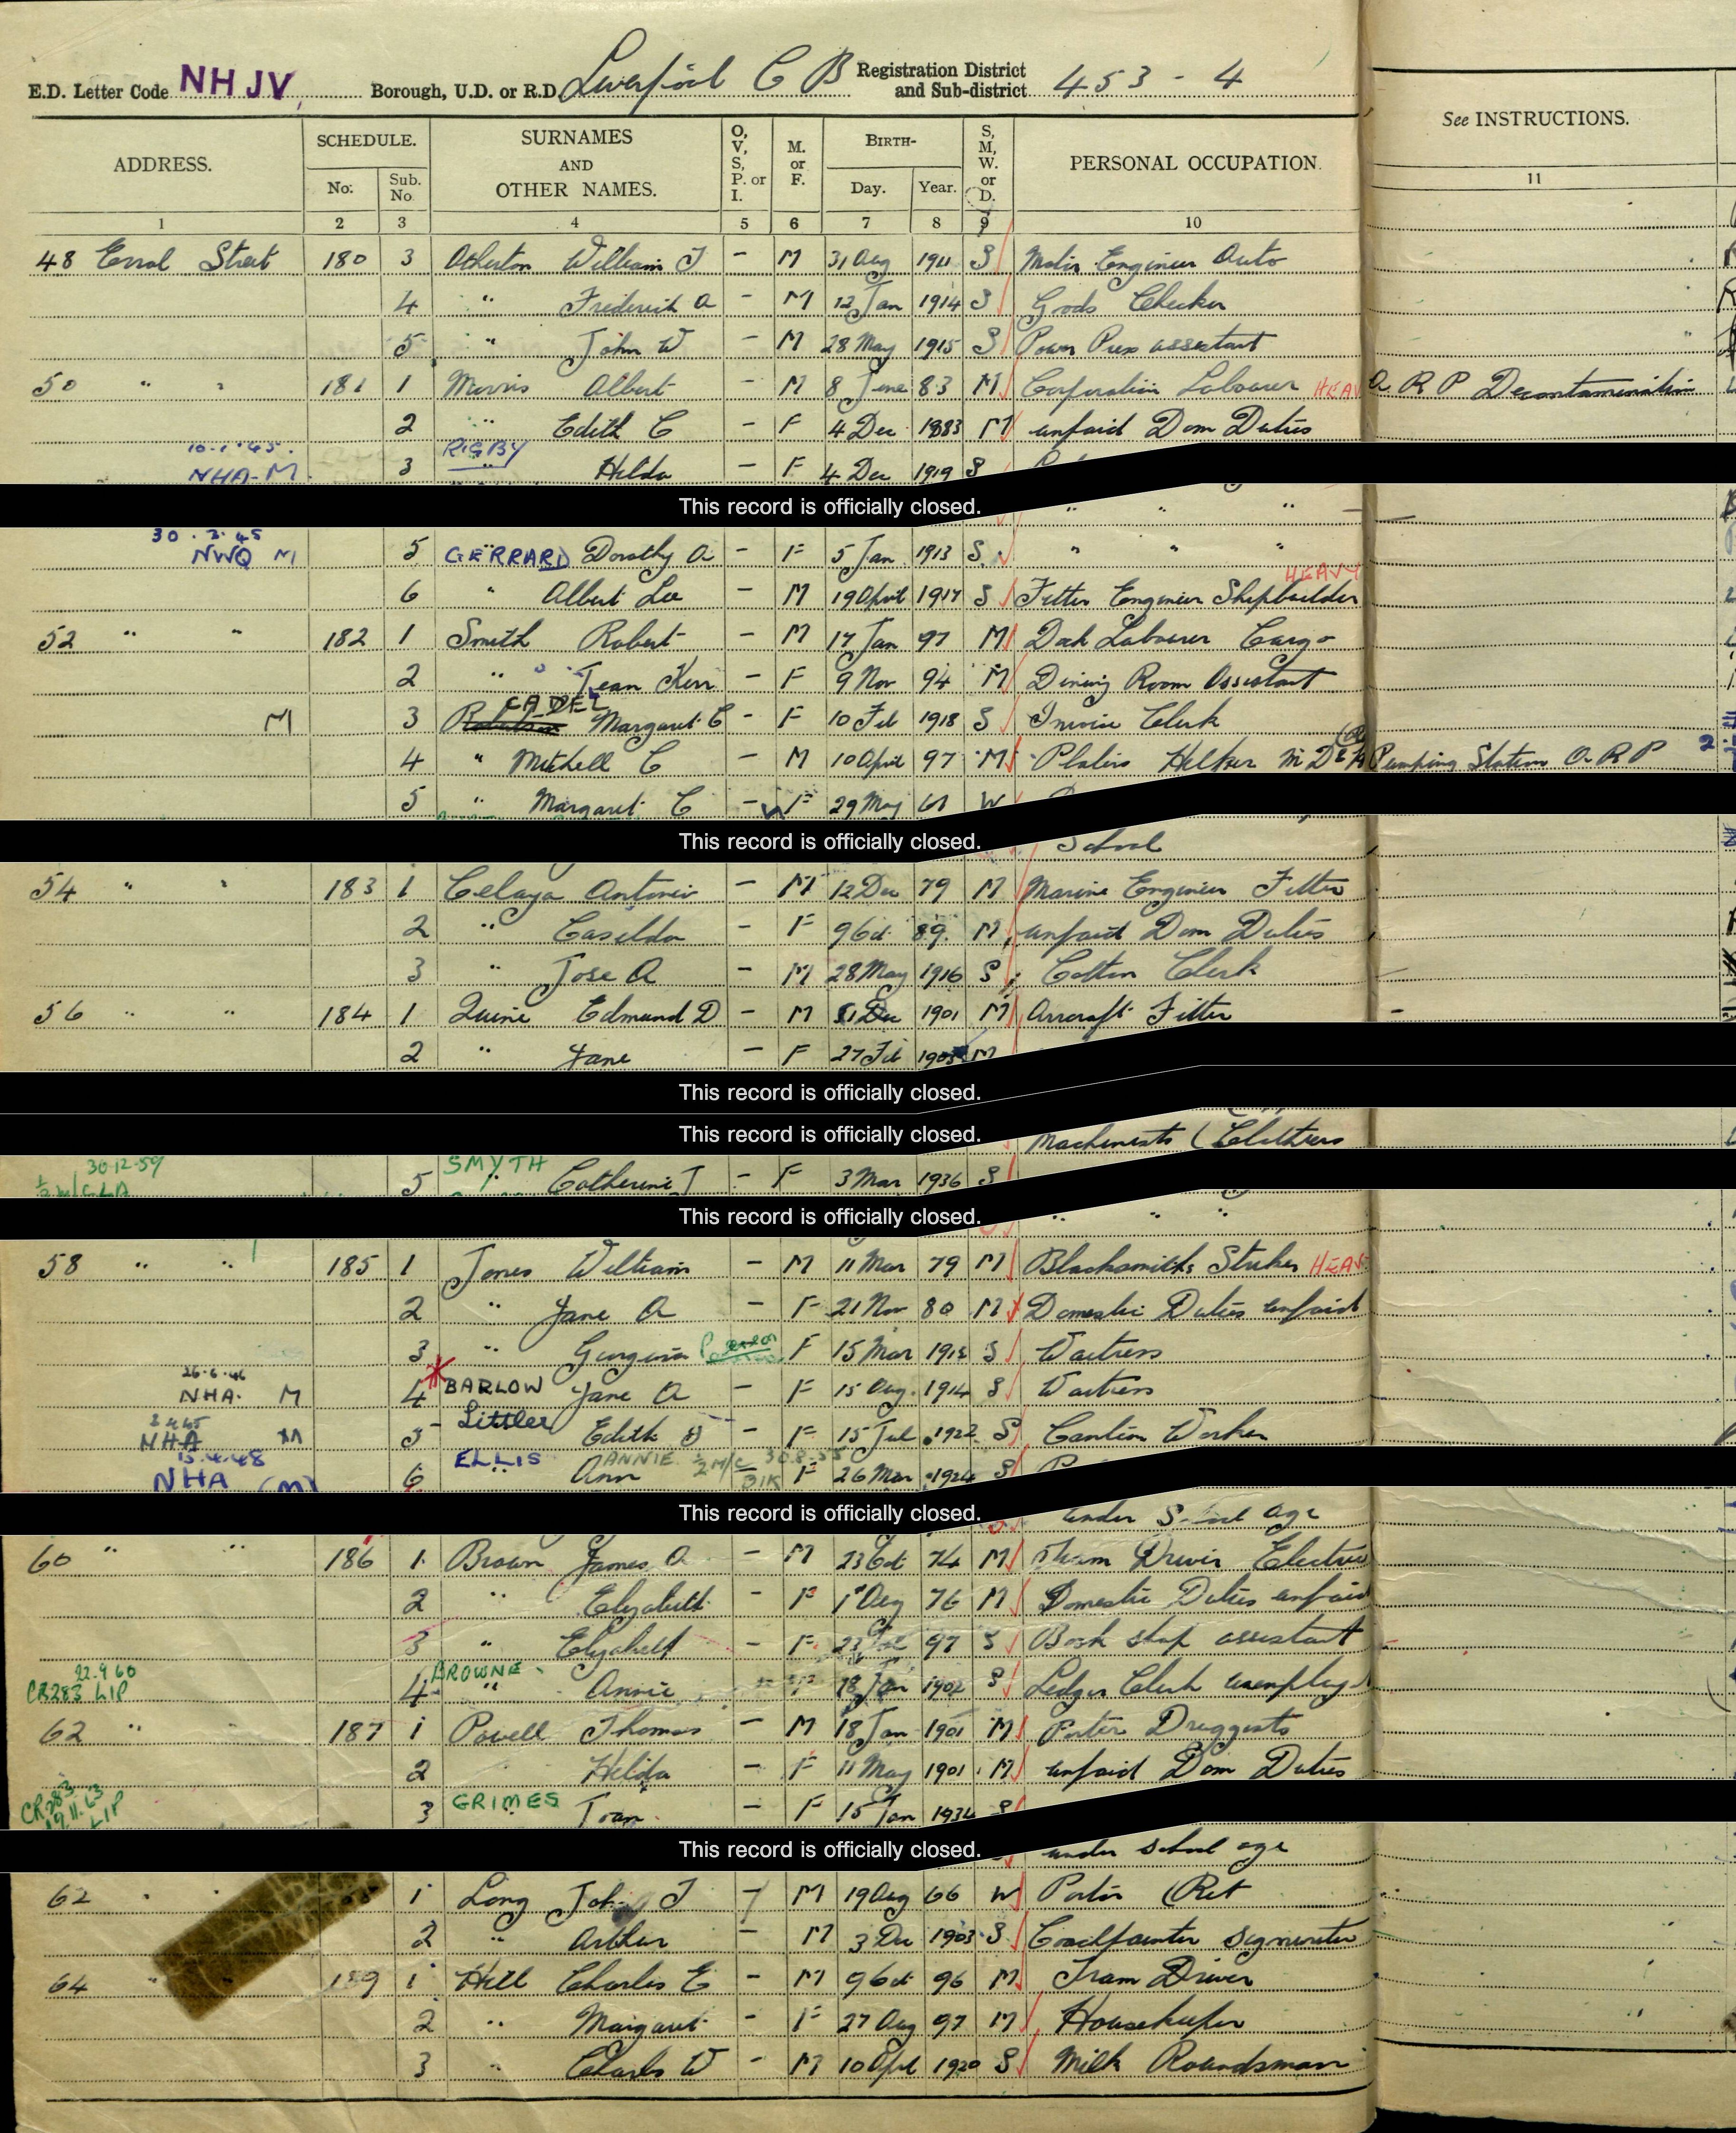 E.D. Letter Code NHJV Borough, U.D. or R.D. Liverpool C B Registration District and Sub-district 453 - 4
ADDRESS. SCHEDULE. No. Sub. No. SURNAMES AND OTHER NAMES. O, V, S, P. or I. M. or F. BIRTH- Day. Year. S, M, W. or D. PERSONAL OCCUPATION. See INSTRUCTIONS.
1 2 3 4 5 6 7 8 9 10 11
48 Errol Street 180 3 Atherton William J - M 31 Aug 1911 S Motor Engineer Auto
4 " Frederick A - M 12 Jan 1914 S Goods Checker
5 " John W - M 28 May 1915 S Power Press assistant
50 " " 181 1 Morris Albert - M 8 June 83 M Corporation Labourer HEAV A R P Decontamination
2 " Edith C - F 4 Dec 1883 M unpaid Dom Duties
10.1.45. NHA-M 3 RIGBY " Hilda - F 4 Dec 1919 S
This record is officially closed.
" " "
30.3.45 NWQ M 5 GERRARD " Dorothy A - F 5 Jan 1913 S " " "
6 " Albert Lee - M 19 April 1917 S Fitter Engineer Shipbuilder HEAVY
52 " " 182 1 Smith Robert - M 17 Jan 97 M Dock Labourer Cargo
2 " Jean Kerr - F 9 Nov 94 M Dining Room Assistant
M 3 CADEL Robertson Margaret C - F 10 Feb 1918 S Invoice Clerk
4 " Mitchell C - M 10 April 97 M Platers Helper Pumping Station A R P 2
5 " Margaret C - F 29 May W
This record is officially closed.
School
54 " " 183 1 Celaya Antonio - M 12 Dec 79 M Marine Engineer Fitter
2 " Caselda - F 9 Oct 89 M unpaid Dom Duties
3 " Jose A - M 28 May 1916 S Cotton Clerk
56 " " 184 1 Quine Edmund D - M Dec 1901 M Aircraft Fitter
2 " Jane - F 27 Feb 1903 M
This record is officially closed.
This record is officially closed.
Machinists (Clothiers
30.12.59 5 SMYTH " Catherine J - F 3 Mar 1936 S
This record is officially closed.
" " "
58 " " 185 1 Jones William - M 11 Mar 79 M Blacksmiths Striker HEAV
2 " Jane A - F 21 Nov 80 M Domestic Duties unpaid
3 " Georgina F 15 Mar 1912 S Waitress
26.6.46 NHA. M 4 BARLOW Jane A - F 15 Aug 1914 S Waitress
3.4.45 NHA M 5 Littler Edith - F 15 Jul 1922 S Canteen Worker
15.4.48 NHA (M) 6 ELLIS " Ann ANNIE 30.8.55 F 26 Mar 1924 S
This record is officially closed.
under School age
60 " " 186 1 Brown James A - M 23 Oct 74 M Tram Driver Electric
2 " Elizabeth - F 1 Aug 76 M Domestic Duties unpaid
3 " Elizabeth - F 23 97 S Book shop assistant
22.9.60 CR283 LIP 4 BROWNE " Annie F 18 Jan 1902 S Ledger Clerk unemploy
62 " " 187 1 Powell Thomas - M 18 Jan 1901 M Porter Druggists
2 Hilda - F 11 May 1901 M unpaid Dom Duties
CR283 19.11.63 LIP 3 GRIMES " Joan - F 15 Jan 1934 S
This record is officially closed.
under school age
62 " 1 Long John J - M 19 Aug 66 W Porter (Ret
2 " Arthur - M 3 Dec 1903 S Coachpainter Signwriter
64 " 189 1 Hill Charles E - M 9 Oct 96 M Tram Driver
2 " Margaret - F 27 Aug 97 M Housekeeper
3 " Charles W - M 10 Apl 1920 S Milk Roundsman